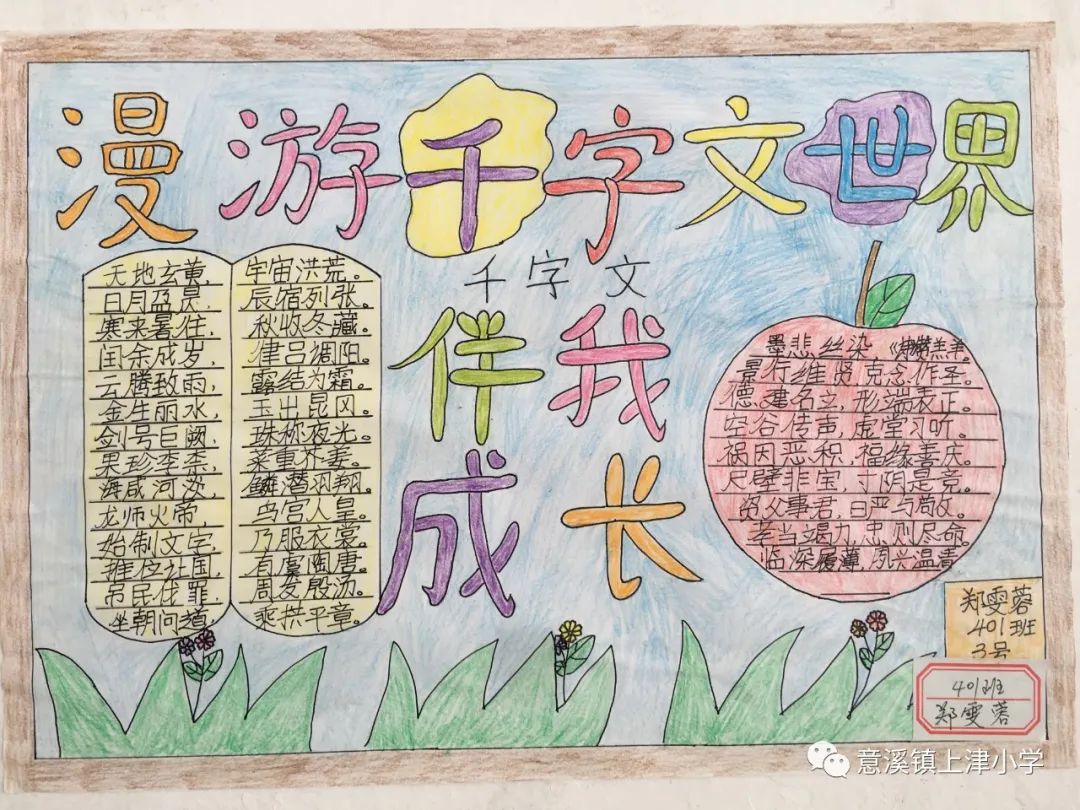 漫游千字文世界
千字文
伴我成长
天地玄黄, 宇宙洪荒。
日月盈昃, 辰宿列张。
寒来暑往, 秋收冬藏。
闰余成岁, 律吕调阳。
云腾致雨, 露结为霜。
金生丽水, 玉出昆冈。
剑号巨阙, 珠称夜光。
果珍李柰, 菜重芥姜。
海咸河淡, 鳞潜羽翔。
龙师火帝, 鸟官人皇。
始制文字, 乃服衣裳。
推位让国, 有虞陶唐。
吊民伐罪, 周发殷汤。
坐朝问道, 垂拱平章。
墨悲丝染, 羔羊
景行维贤 克念作圣。
德建名立, 形端表正。
空谷传声, 虚堂习听。
祸因恶积, 福缘善庆。
尺璧非宝 寸阴是竞。
资父事君, 曰严与敬。
孝当竭力, 忠则尽命
临深履薄, 夙兴温清
郑雯蓉
401班
3号
401班
郑雯蓉
意溪镇上津小学